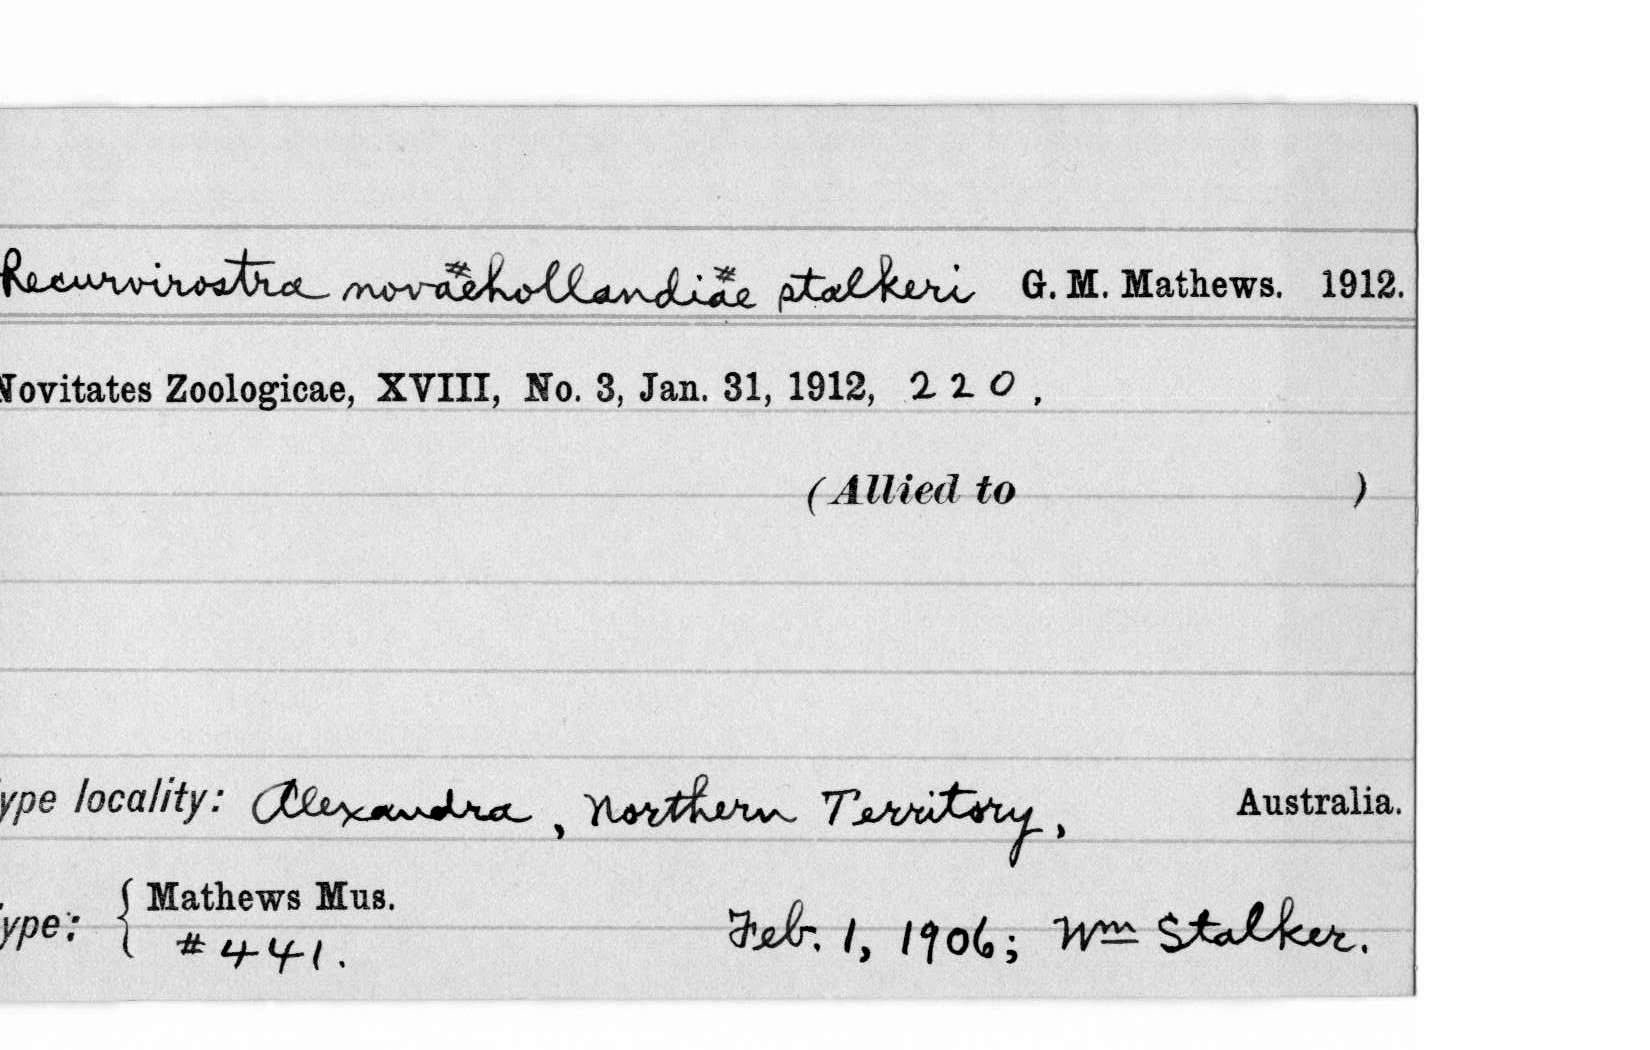 Recurvirostra novaehollandiae stalkeri G. M. Mathews. 1912.
Novitates Zoologicae, XVIII, No. 3, Jan. 31, 1912, 220.
(Allied to )
ype locality: Alexandra, Northern Territory, Australia.
ype: { Mathews Mus.
#441. Feb. 1, 1906; Wm Stalker.